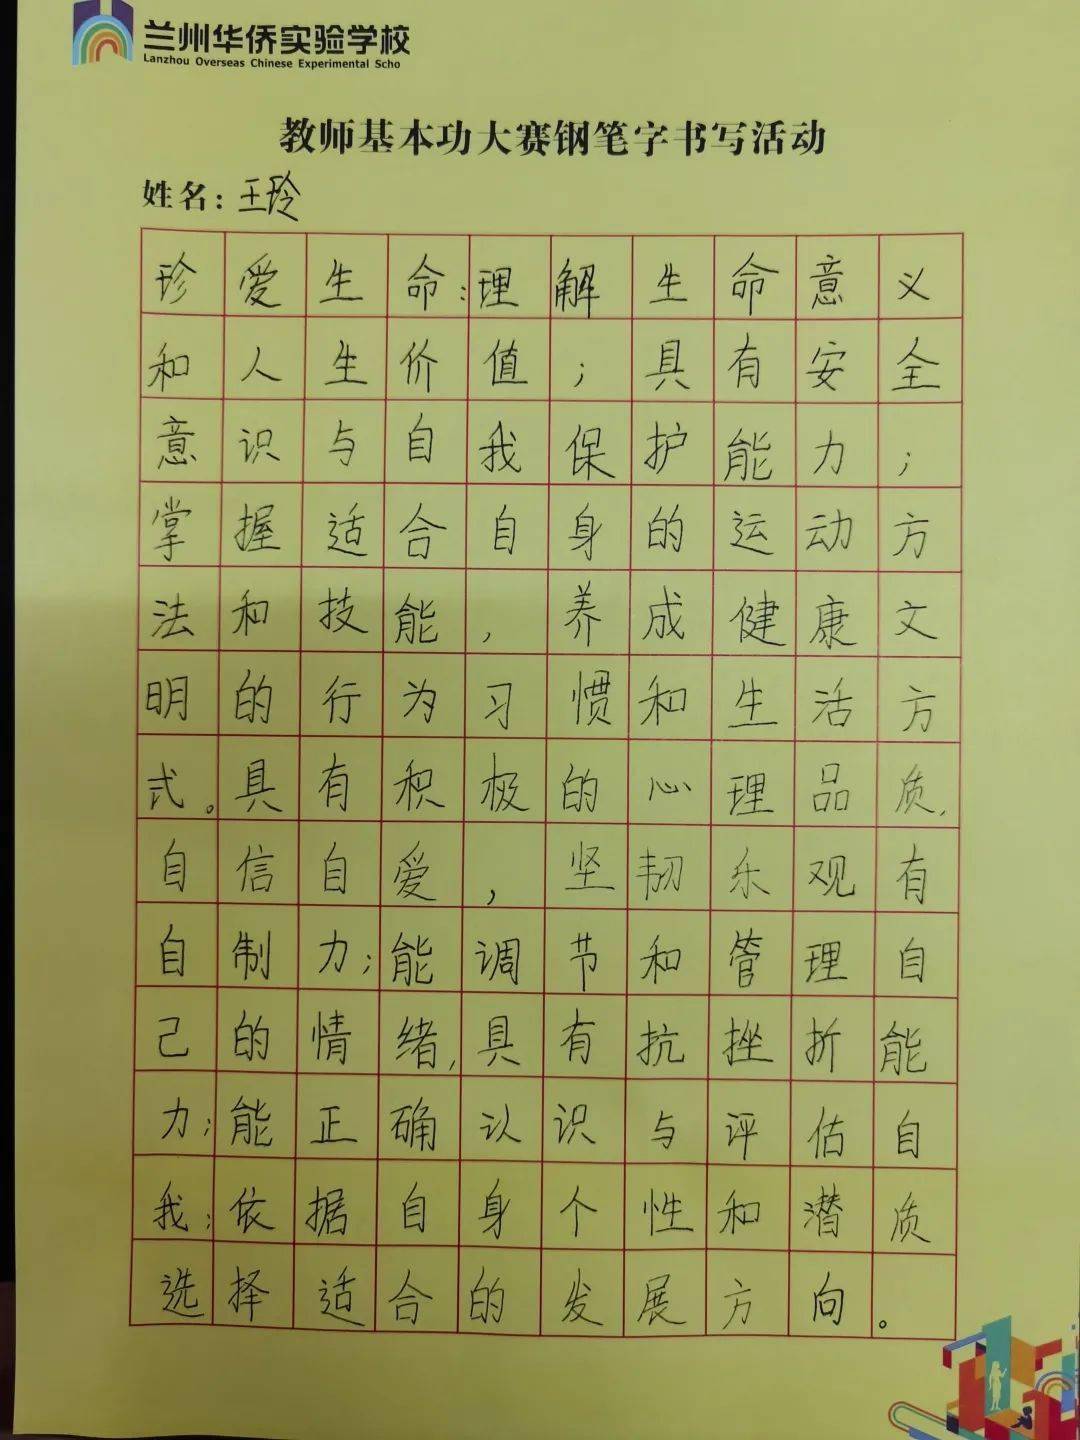 兰州华侨实验学校
Lanzhou Overseas Chinese Experimental Scho
教师基本功大赛钢笔字书写活动
姓名：王玲
珍爱生命：理解生命意义
和人生价值；具有安全
意识与自我保护能力；
掌握适合自身的运动方
法和技能，养成健康文
明的行为习惯和生活方
式。具有积极的心理品质，
自信自爱，坚韧乐观有
自制力；能调节和管理自
己的情绪，具有抗挫折能
力；能正确认识与评估自
我；依据自身个性和潜质
选择适合的发展方向。